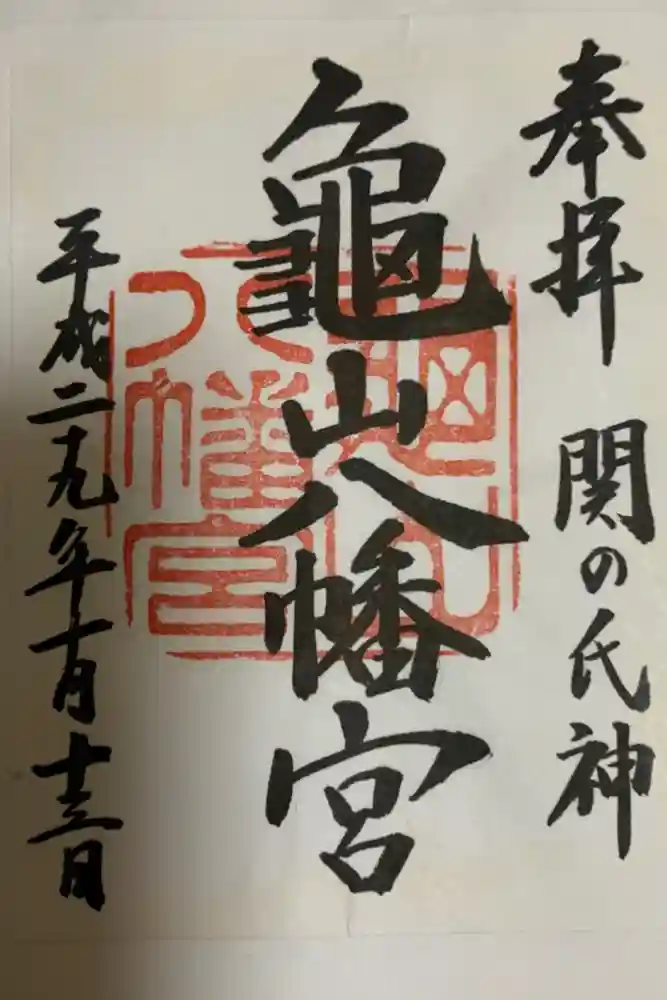 奉拝 関の氏神
亀山八幡宮
平成二十九年十月十三日
亀山
八幡宮